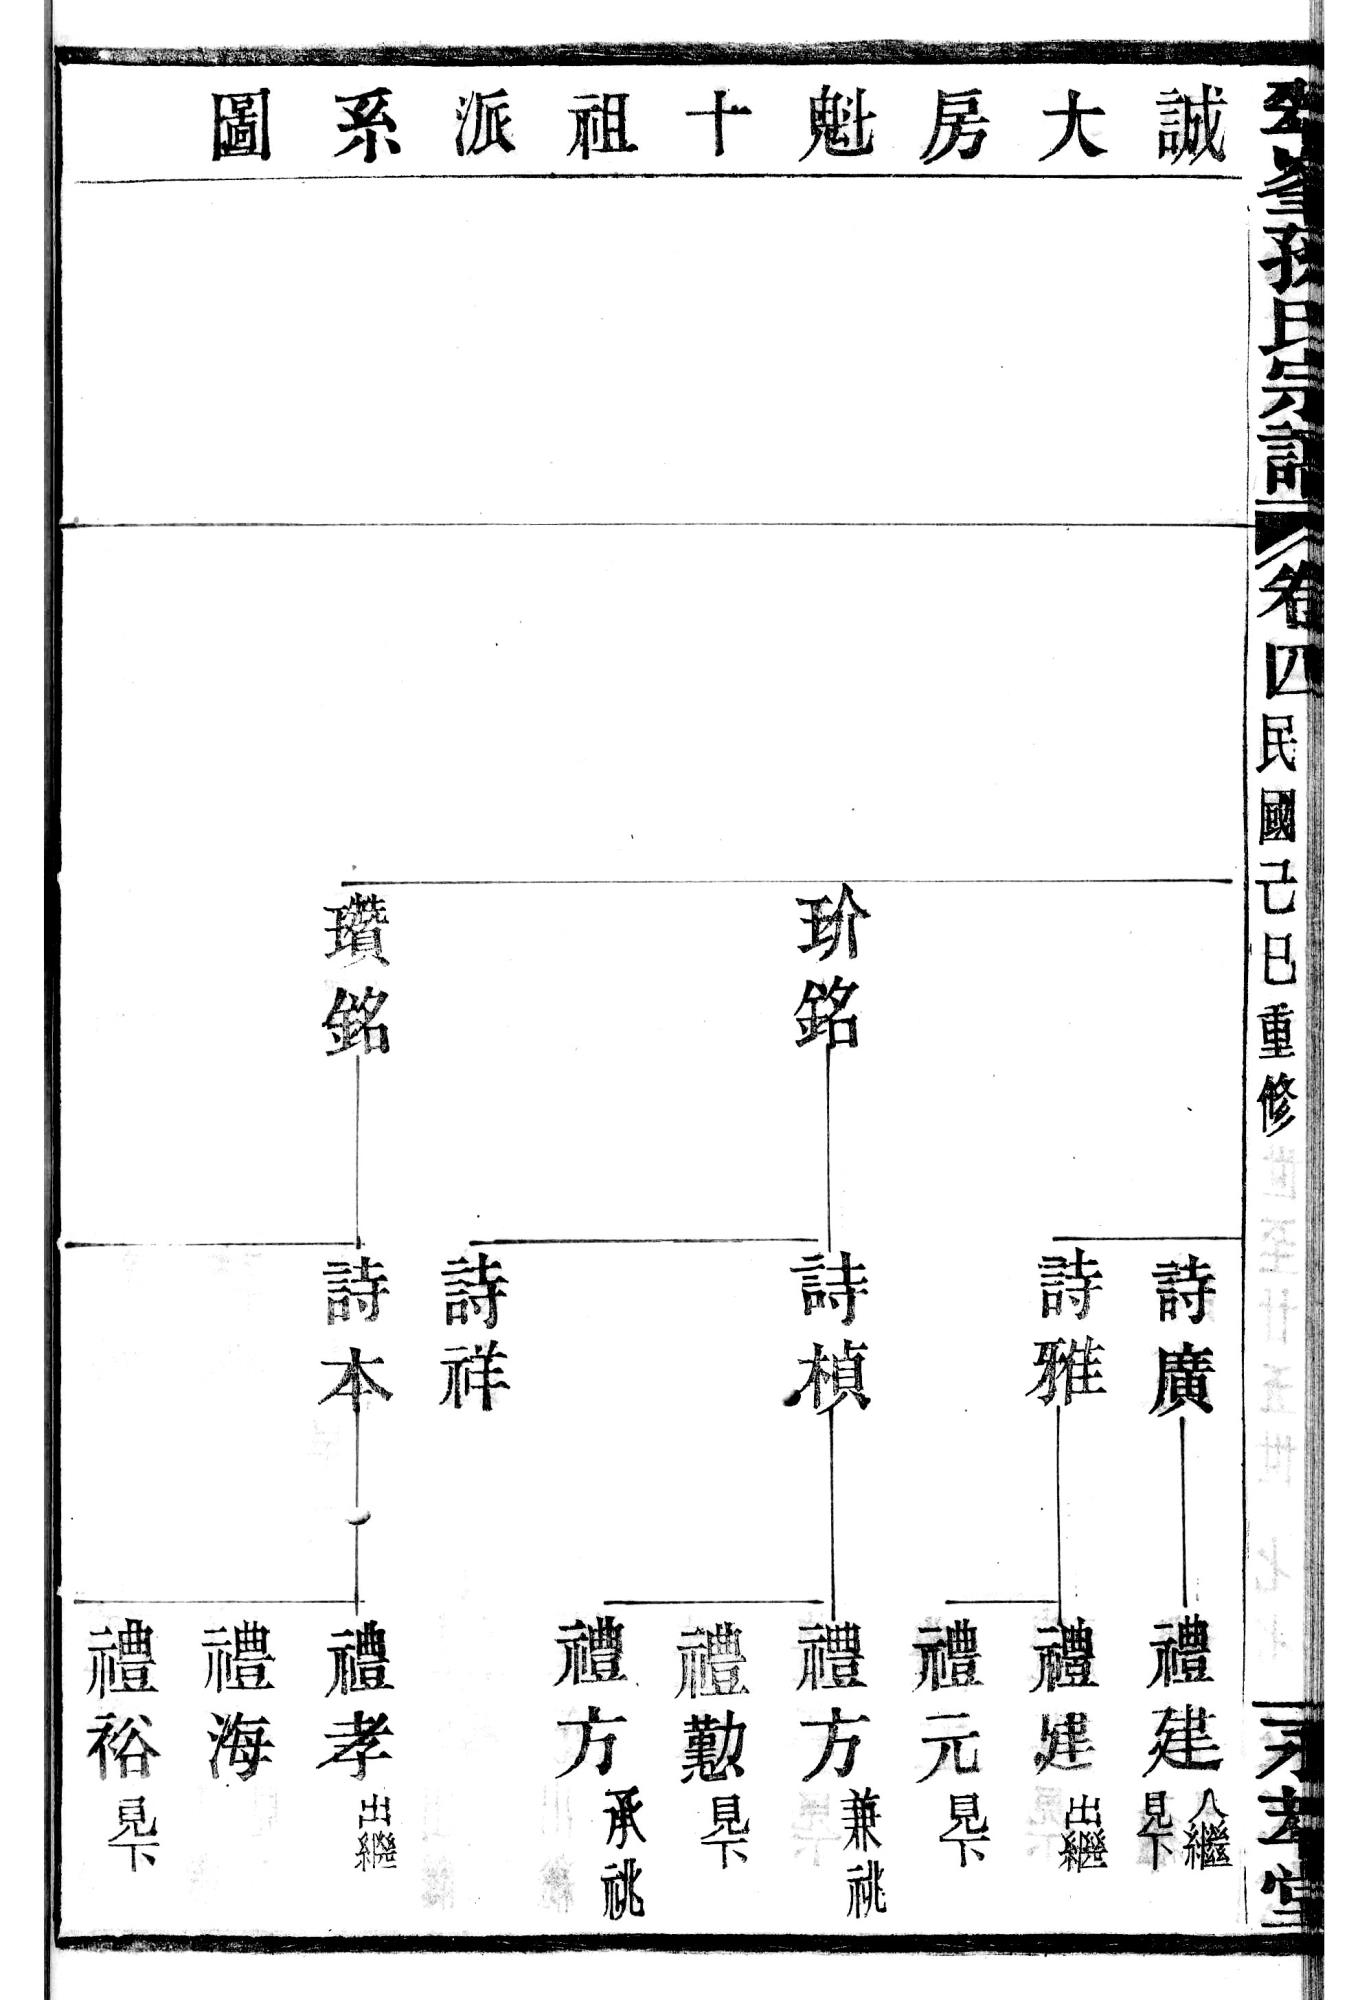 誠大房魁十祖派系圖
孫氏宗譜
卷四
民國己巳重修
堂
玠銘
瓚銘
詩廣
詩雅
詩楨
詩祥
詩本
禮建 入繼 見下
禮建 出繼
禮元 見下
禮方 兼祧
禮勤 見下
禮方 承祧
禮孝 出繼
禮海
禮裕 見下